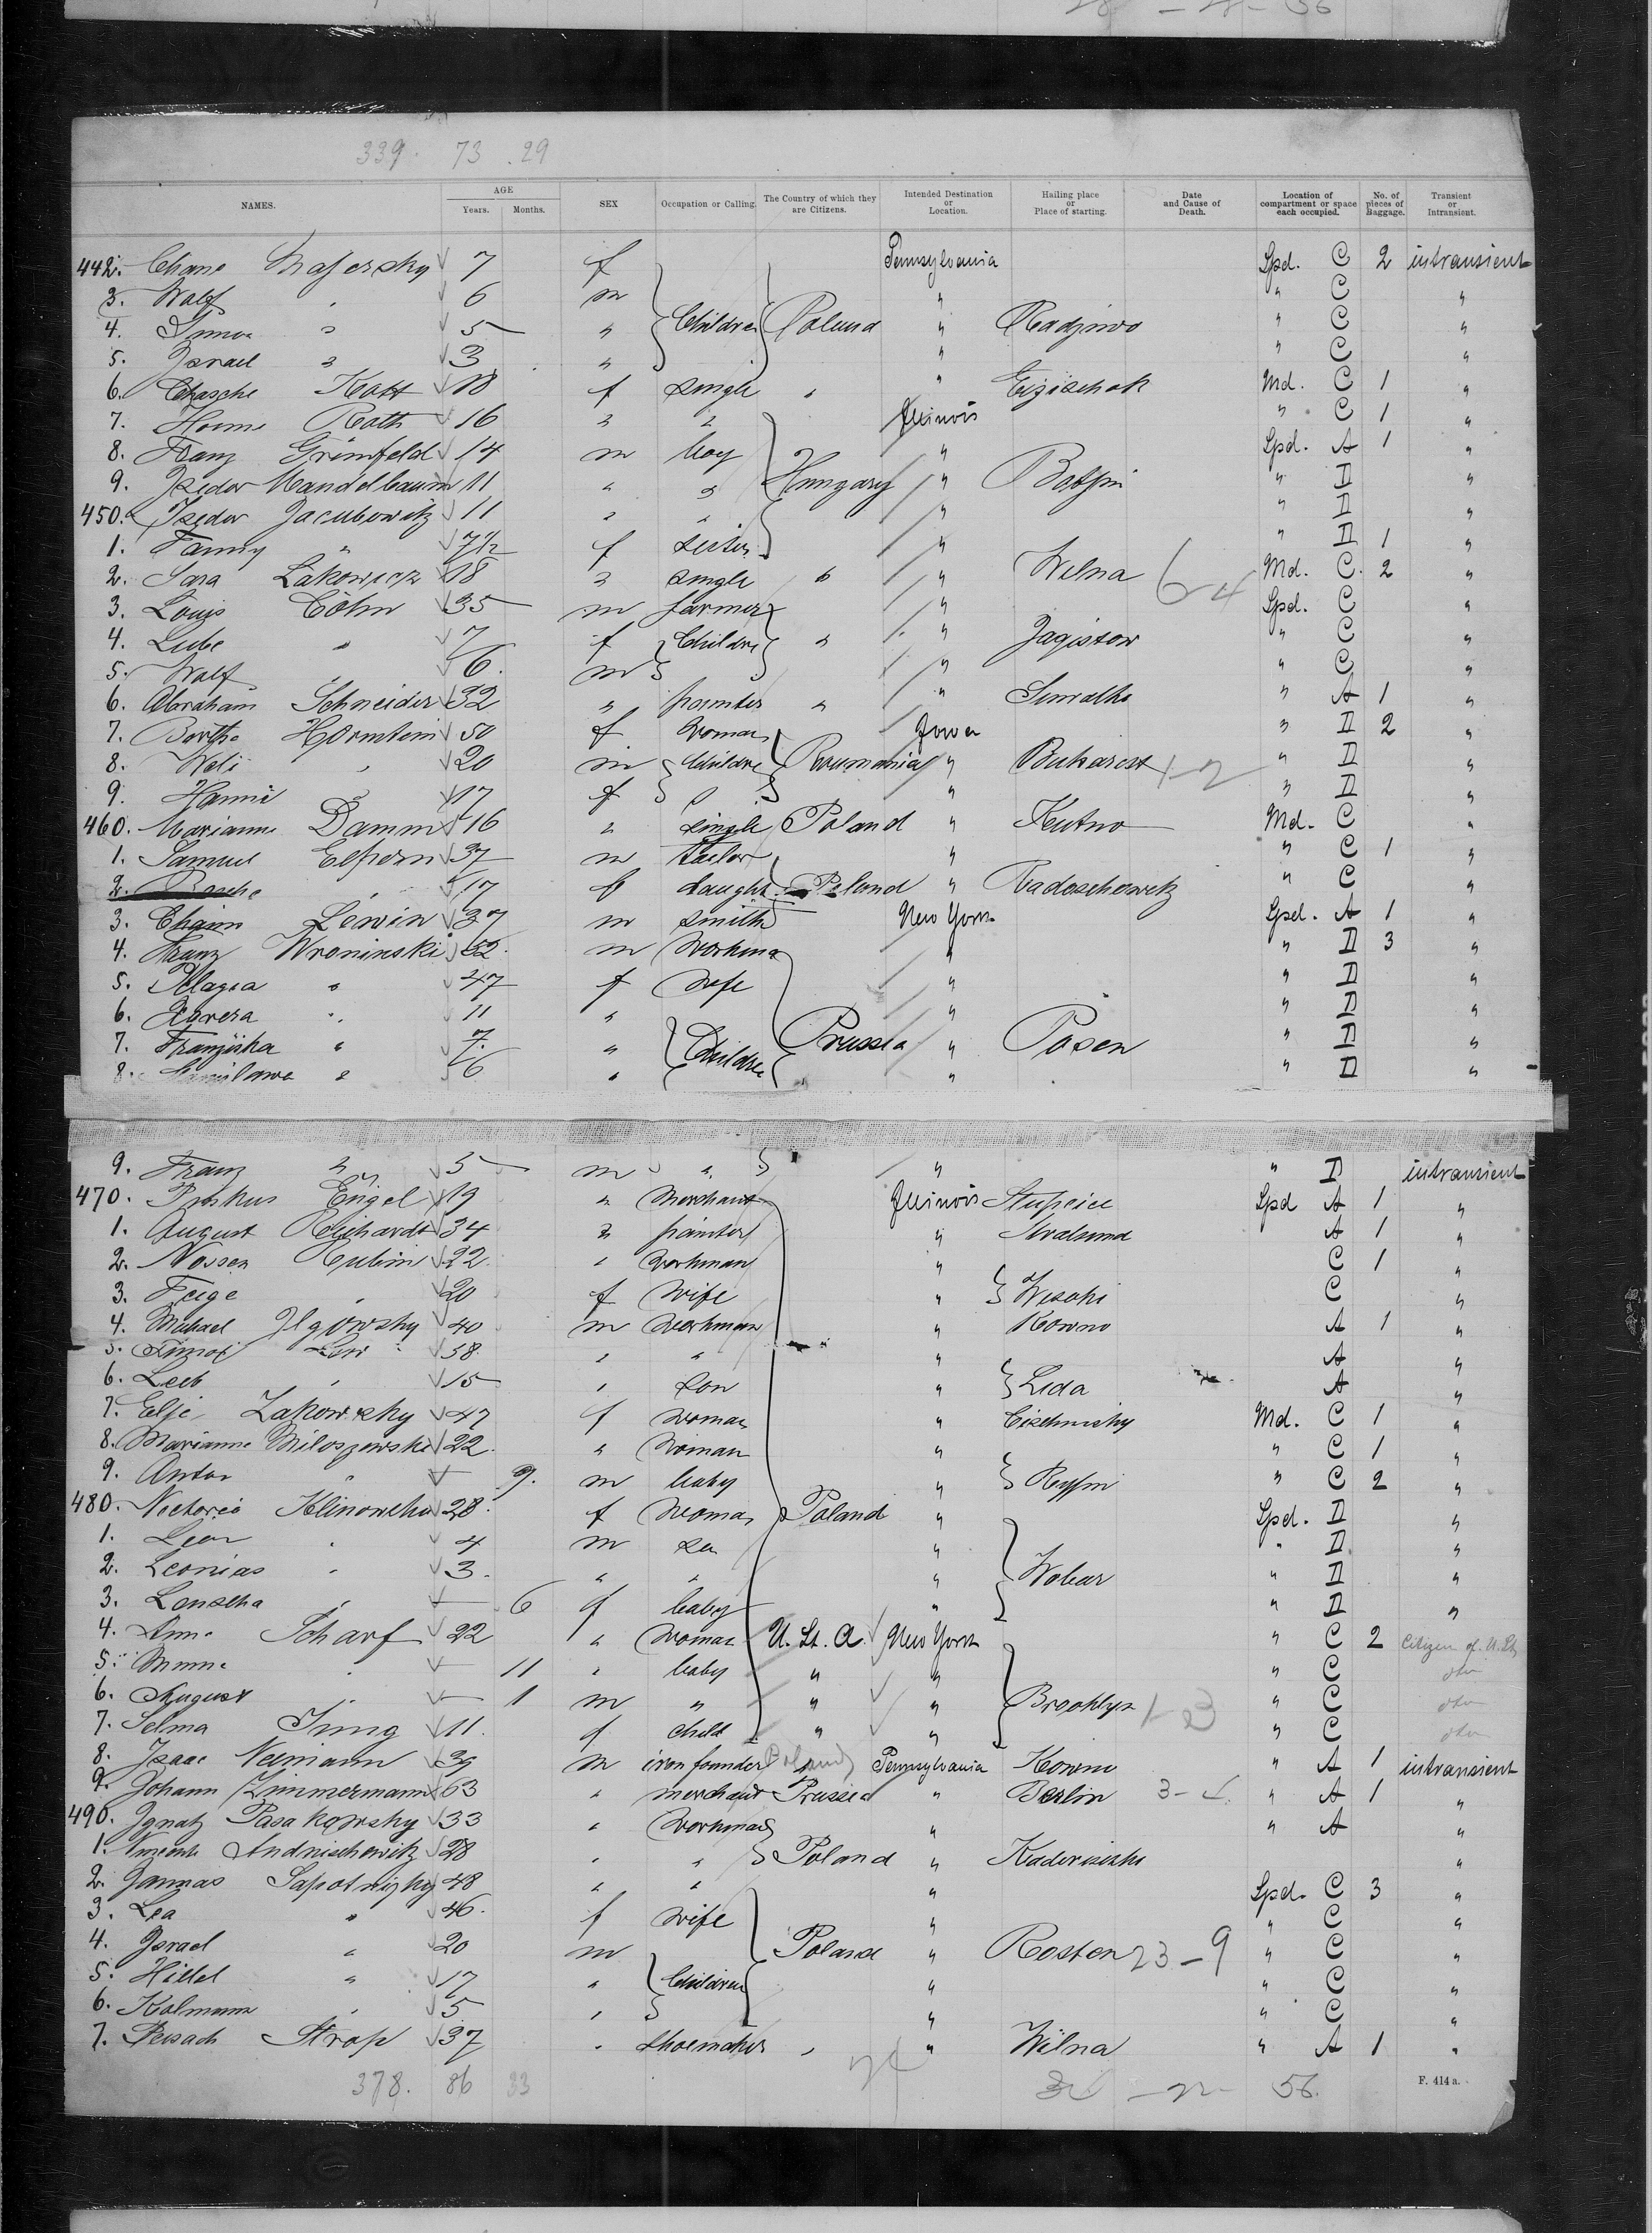 28 - 28 - 56
339. 73. 29
NAMES. AGE Years. Months. SEX Occupation or Calling. The Country of which they are Citizens. Intended Destination or Location. Hailing place or Place of starting. Date and Cause of Death. Location of compartment or space each occupied. No. of pieces of Baggage. Transient or Intransient.
442. Chane 7 f Pennsylvania Spd. C 2 intransient
3. Wolf " 6 m " " C "
4. " 5 " Children Poland " Radziwo " C "
5. Israel " 3 " " " C "
6. Chasche Katt 18 f single " " Md. C 1 "
7. Roth 16 " " Illinois " C 1 "
8. Franz Grünfeld 14 m boy " Spd. A 1 "
9. Isedor Mandelbaum 11 " " Hungary " " D "
450. Isedor Jacubowitz 11 " " " " D "
1. Fanny " f sister " " D 1 "
2. Sara Lakowicz 18 " single " " Wilna 6 4 Md. C. 2 "
3. Louis Cohn 35 m farmer " Spd. C "
4. Lube " 7 f Childre " " Jagistow " C "
5. Wolf " 6. m " " C "
6. Abraham Schneider 32 " painter " " Suwalki " A 1 "
7. Bertha Hornstein 50 f woman Iowa " D 2 "
8. " 20 m Childre Roumania " Bukarest " D "
9. Hanni " 17 f " " D "
460. Marianne Damm 16 " single Poland " Kutno Md. C "
1. Samuel 37 m tailor " " C 1 "
2. " 17 f daught. Poland " Radoschowitz " C "
3. Chaim Lewin 37 m smith New York Spd. A 1 "
4. Franz Wroninski 52. m Workma " " D 3 "
5. Pelagia " 47 f Wife " " D "
6. Xavera " 11 " " " D "
7. Franziska " 7. " Childre Prussia " Posen " D "
8. Stanislawa " 6 " " " D "
9. Franz " 5 m " " " D intransient
470. Engel 19 " Merchant Illinois Spd A 1 "
1. August Reichardt 34 " painter " Stralsund A 1 "
2. Nossen Rubin 22. " Workman " C 1 "
3. Feige " 20 f Wife " Wisoki C "
4. Michael Ilgowsky 40 m Workman " Kowno A 1 "
5. 38. " " " A "
6. Leib " 15 " son " Lida A "
7. Zakowsky 47 f woman " Md. C 1 "
8. Marianne Miloszewski 22. " Woman " " C 1 "
9. Anton " 9. m baby " Ryppin " C 2 "
480. Victoria Klinowska 28. f Woman Poland " Spd. D "
1. Leon " 4 m " " D "
2. Leonias " 3. " " " " D "
3. " 6 f baby " " D "
4. Anna Scharf 22 " Woman U. St. A. New York " C 2 Citizen of U. St.
5. " 11 " baby " " " C dto
6. August " 1 m " " " Brooklyn " C dto
7. Selma Jung 11. f child " " " C dto
8. Isaac Neimann 39 m iron founder Poland Pennsylvania Kowno " A 1 intransient
9. Johann Zimmermann 63 " merchant Prussia " Berlin " A 1 "
490. Ignatz Pasakowsky 33 " Workman " " A "
1. Andnischewitz 28 " " Poland " "
2. Jannas 48 " " " Spd. C 3 "
3. Lea " 46. f Wife " " C "
4. Israel " 20 m Poland " Rosten 23-9 " C "
5. Hillel " 17 " Children " " C "
6. Kalmann " 5 " " " C "
7. Peisach Strop 37 " Shoemaker " " Wilna " A 1 "
378. 86 33 56.
F. 414 a.